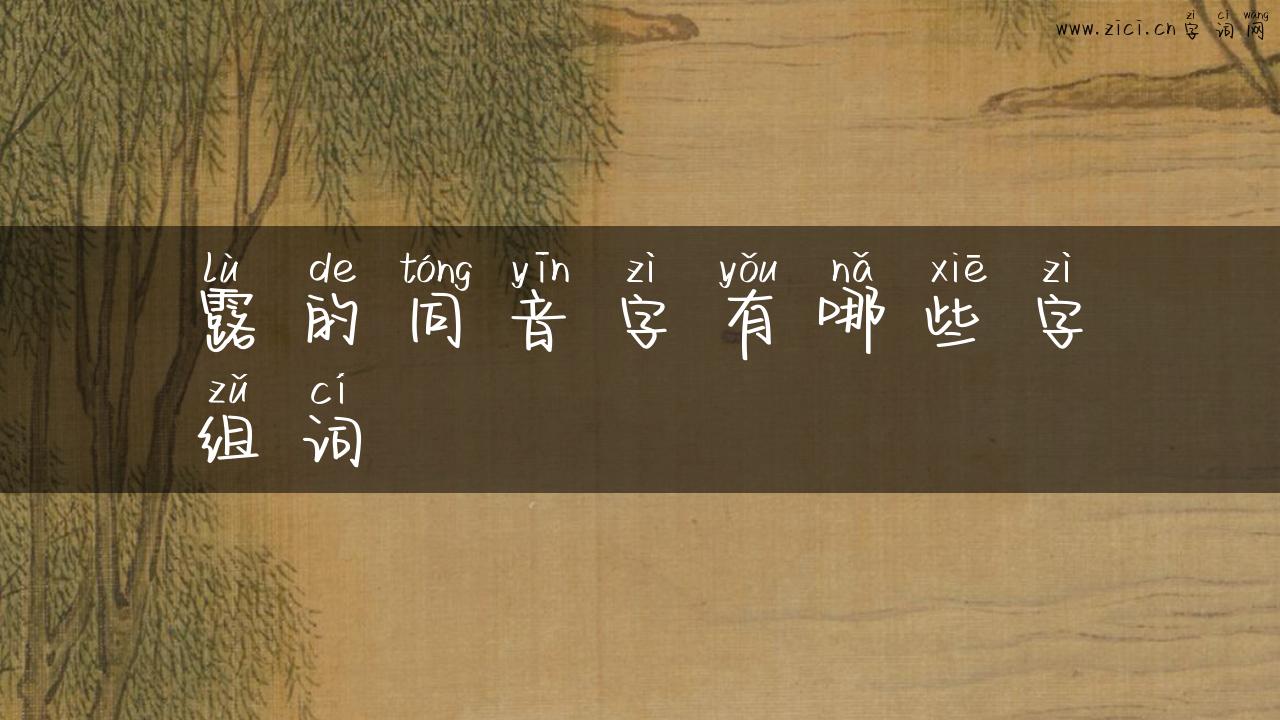 zì cí wǎng
www.zici.cn 字词网
lù de tóng yīn zì yǒu nǎ xiē zì
露的同音字有哪些字
zǔ cí
组词